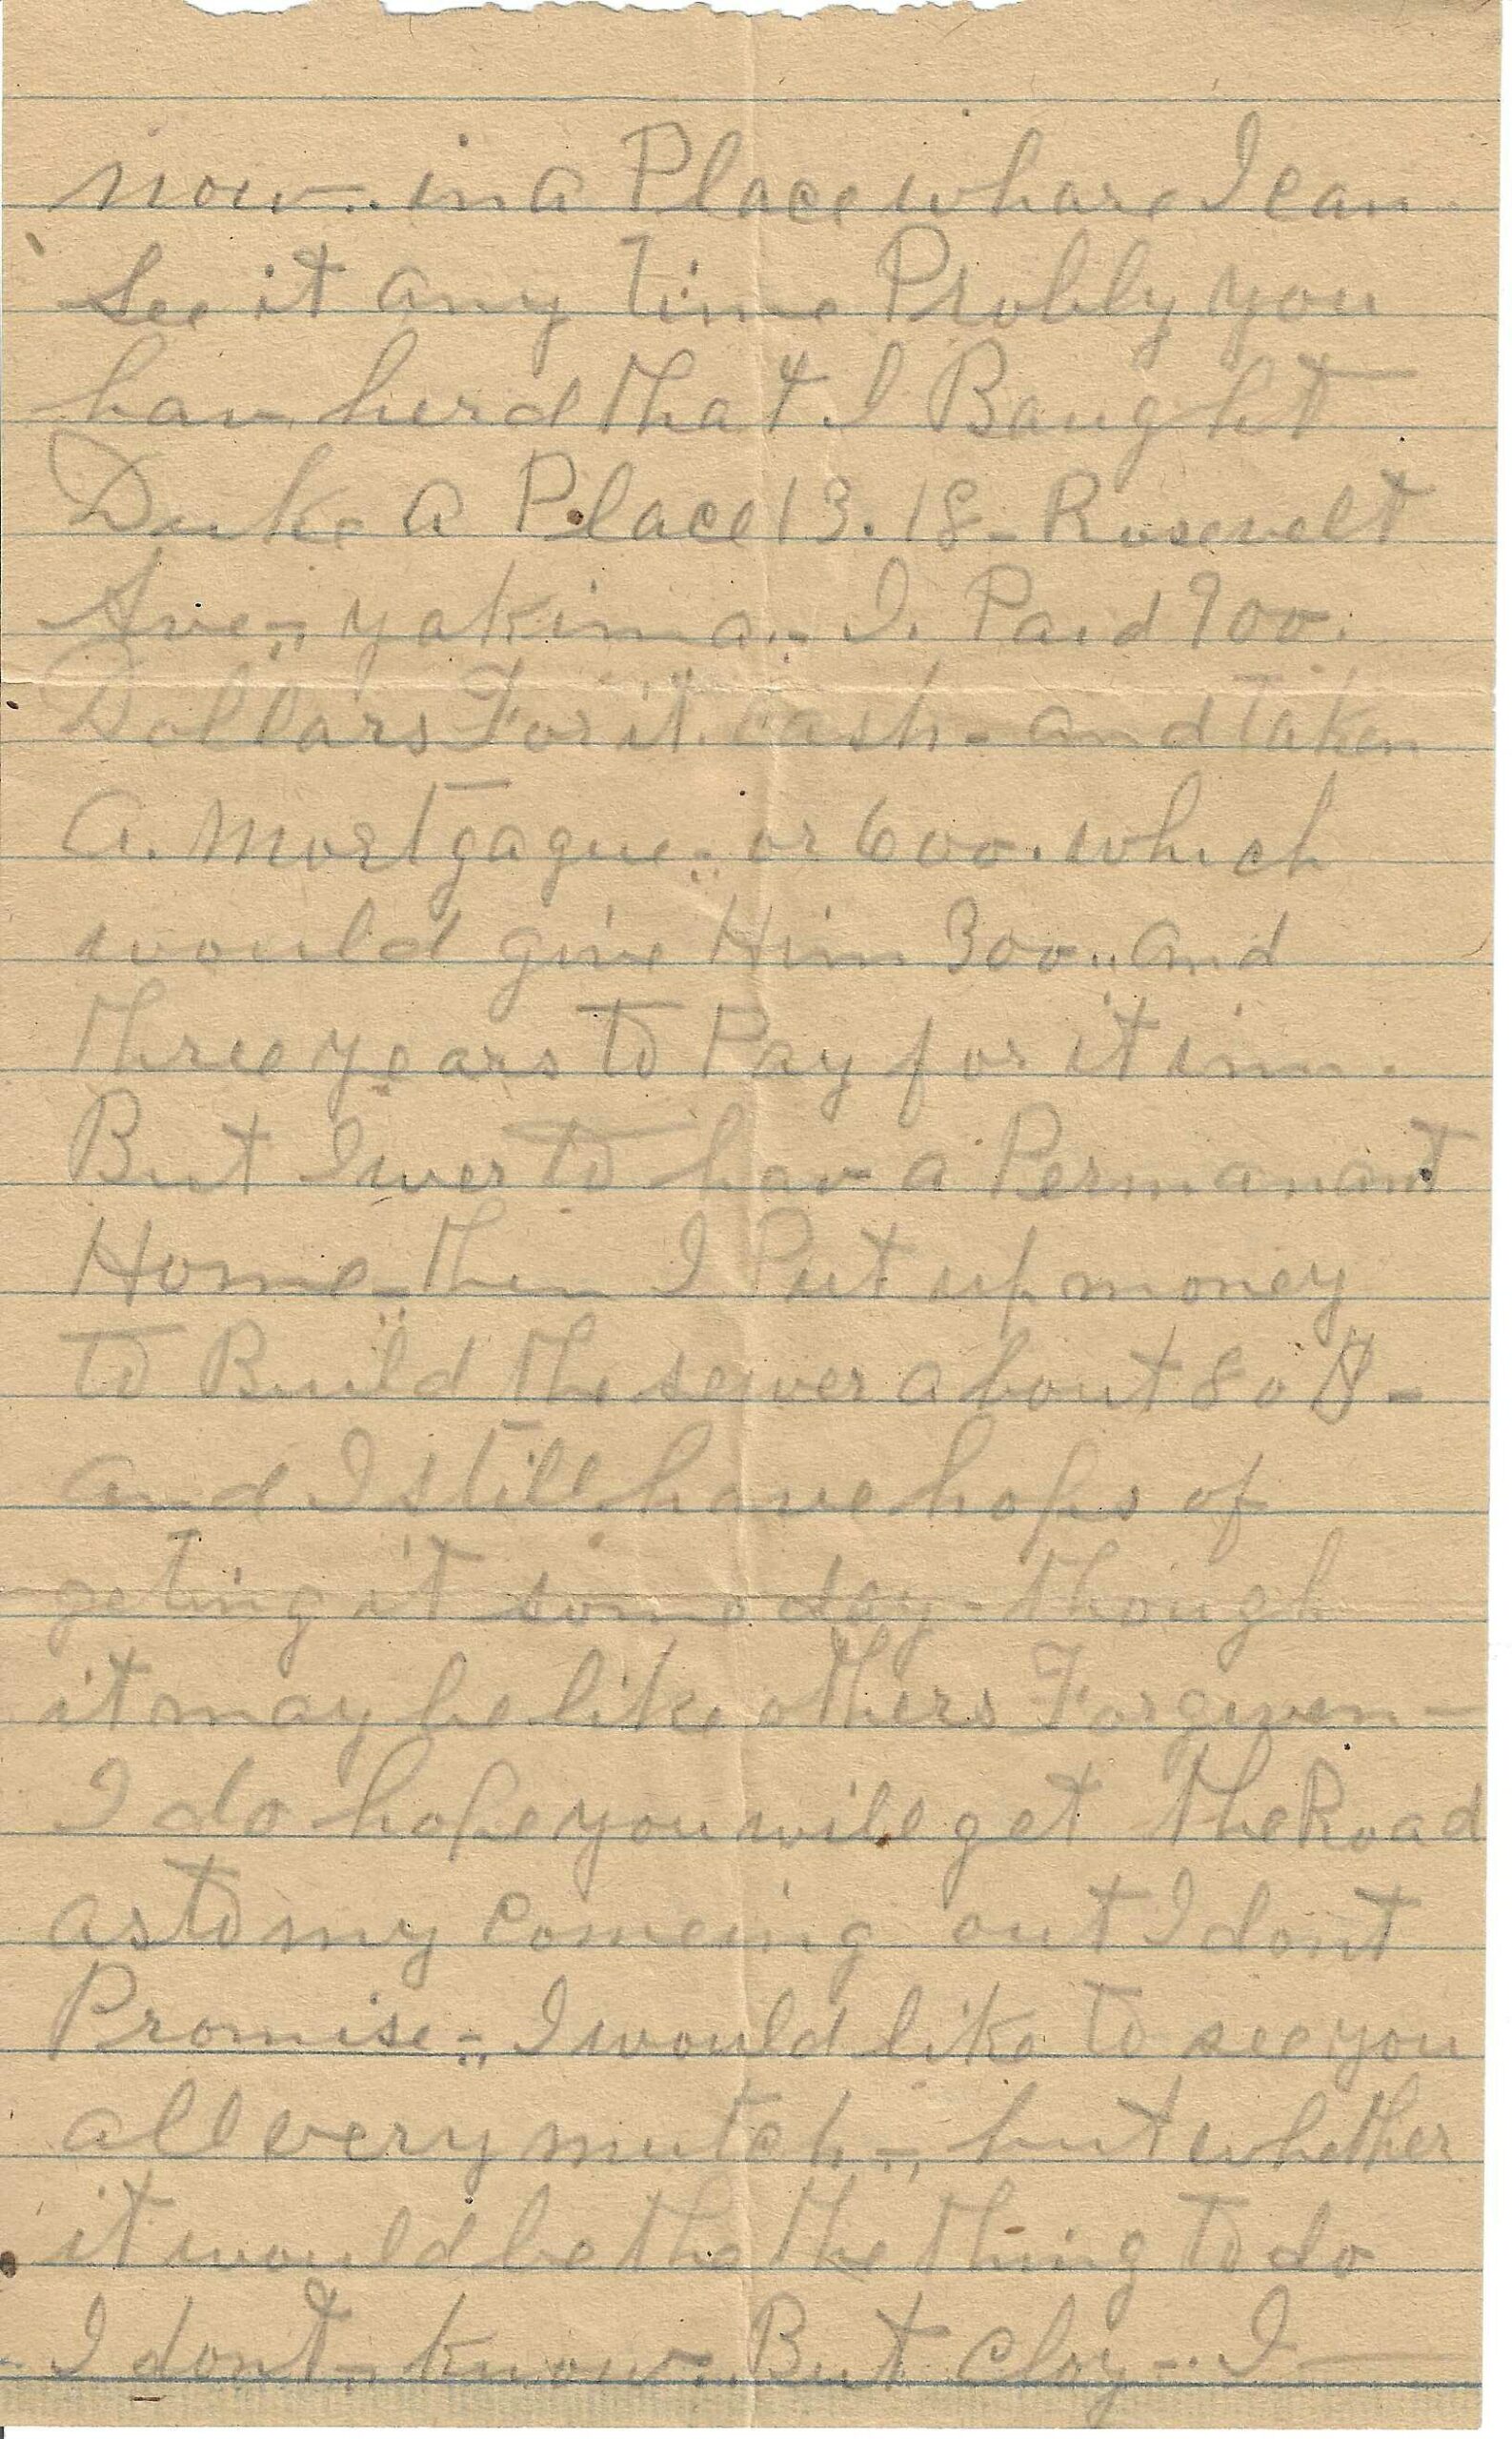 now.. in a Place whare I can
See it any time Probly you
hav herd that I Baught
Duke a Place 13.18 - Rosevelt
Ave - yakima.- I. Paid 900.
Dollars For it. Cash - and Taken
a. Mortgague.. or 600. which
would give Him 300.. and
three years to Pay for it inn.
But I wer to hav a Permanant
Home - then I Put up money
to Build the sewer about 80 $ -
and I still have hops of
geting it some day - though
it may be like others Forgiven -
I do hope you will get the Road
as to my comeing out I dont
Promise - I would like to see you
all very mutch -, but whether
it would be the the thing to do
I dont - know. But Cloy -. I